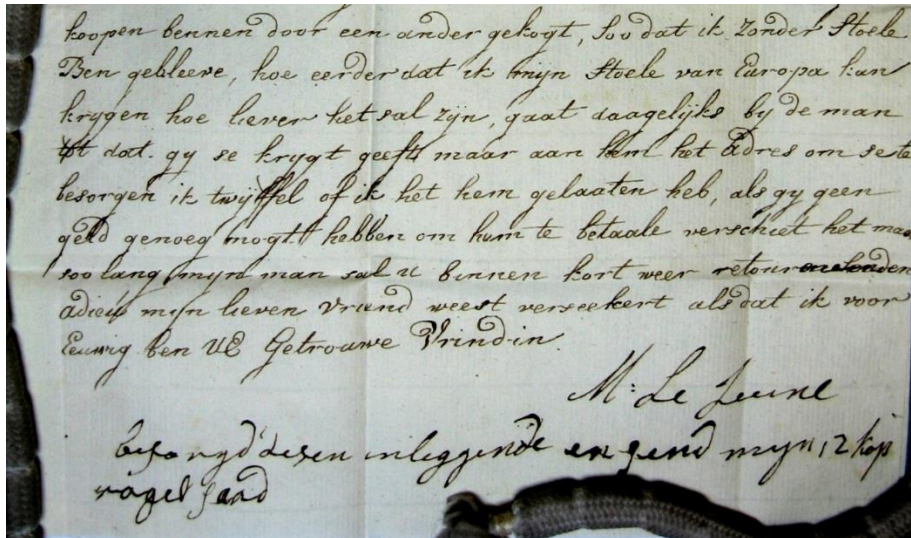 koopen bennen door een ander gekogt, soo dat ik zonder Stoele
Ben gebleeve, hoe eerder dat ik mijn Stoele van Europa kan
krijgen hoe liever het sal zijn, gaat daagelijks bij de man
tot dat gij se krijgt geeft maar aan hem het adres om se te
besorgen ik twijffel of ik het hem gelaaten heb, als gij geen
geld genoeg mogt hebben om hum te betaale verschiet het maar
soo lang mijn man sal u binnen kort weer retour
adieu mijn lieven vriend weest verseekert als dat ik voor
Eeuwig ben UE Getrouwe Vrindin
M: Le Jeune
besorgd desen inleggende en send mijn 12 kop
vogel saad